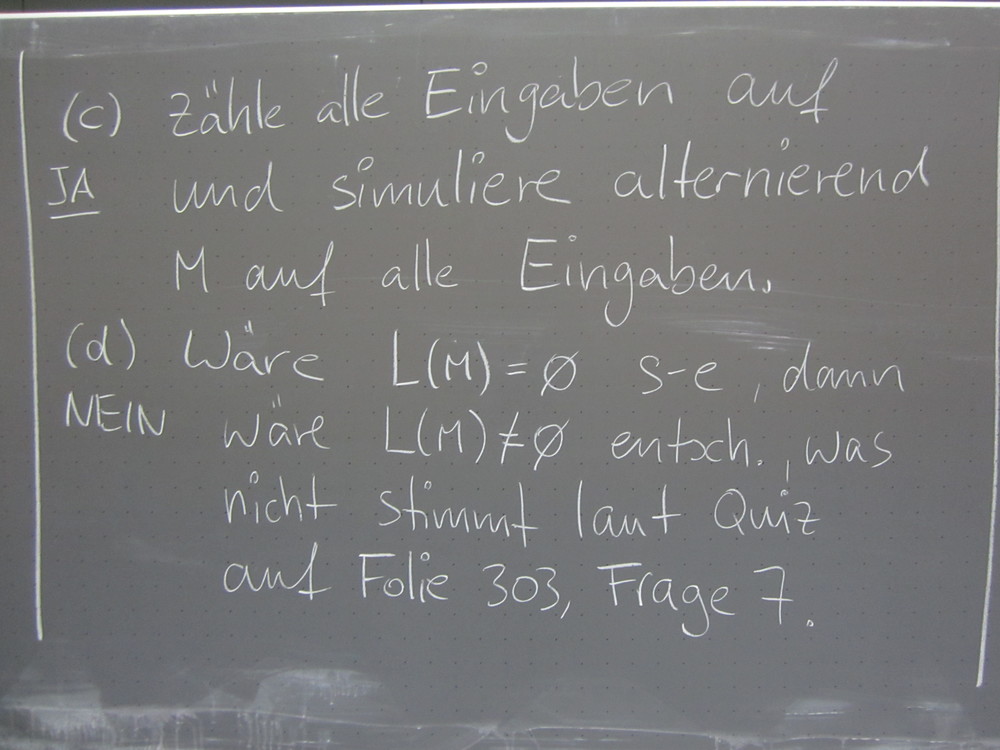 (c) Zähle alle Eingaben auf
JA und simuliere alternierend
M auf alle Eingaben.
(d) Wäre L(M) = ∅ s-e, dann
NEIN wäre L(M) ≠ ∅ entsch., was
nicht stimmt laut Quiz
auf Folie 303, Frage 7.